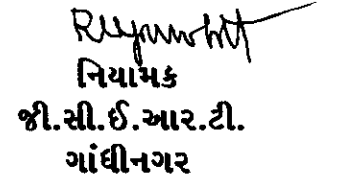 નિયામક
જી.સી.ઈ.આર.ટી.
ગાંધીનગર